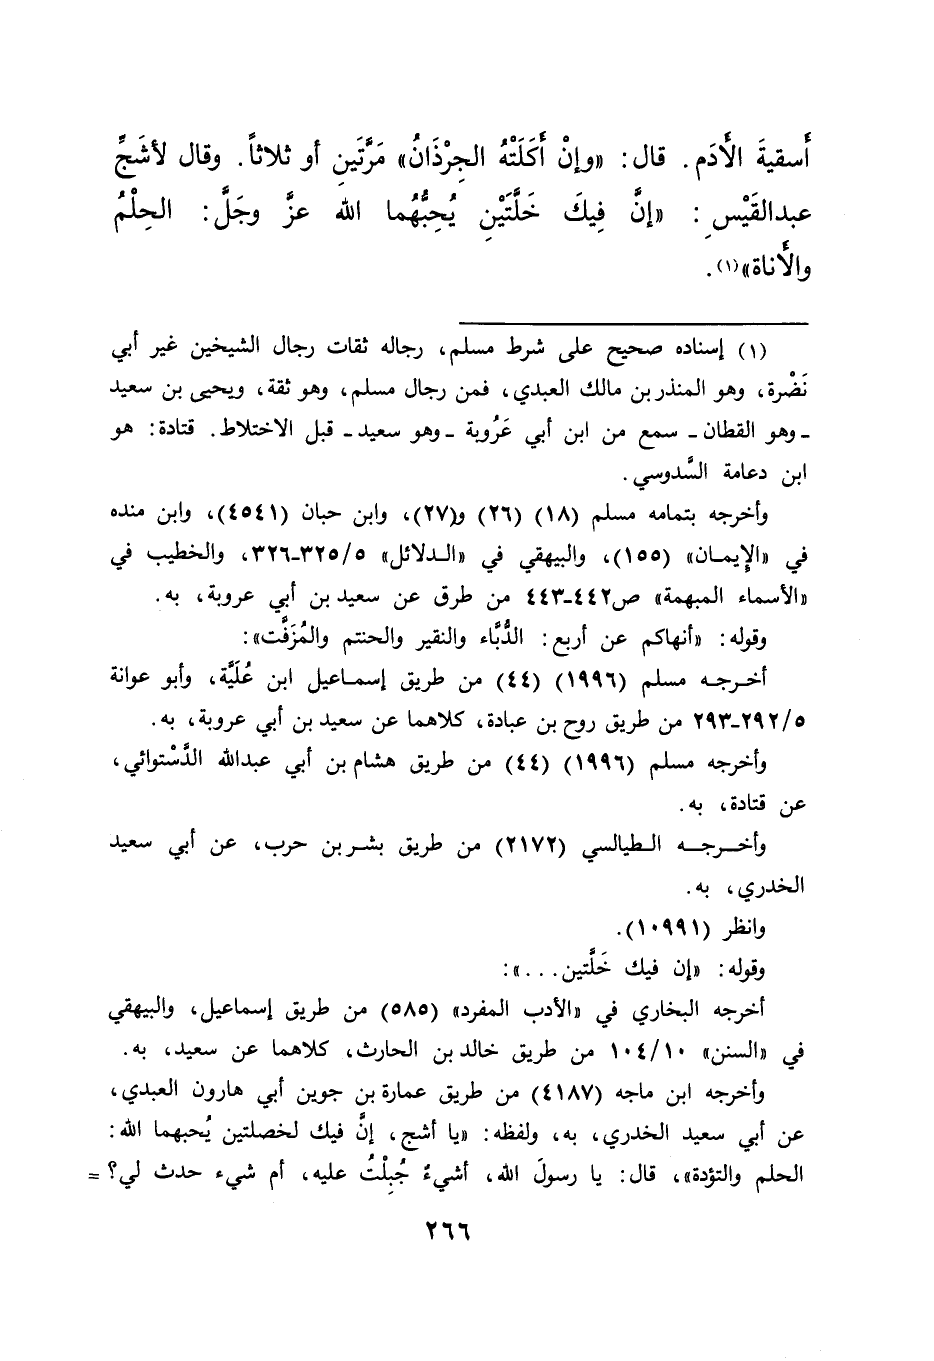 أَسقيةَ الأَدَم. قال: «وإنْ أَكَلَتْهُ الجِرْذَانُ» مَرَّتَين أو ثلاثاً. وقال لأشَجِّ
عبدالقَيْسِ: «إنَّ فِيكَ خَلَّتَيْنِ يُحِبُّهُما الله عزَّ وجَلَّ: الحِلْمُ
والأَناة»(١).
(١) إسناده صحيح على شرط مسلم، رجاله ثقات رجال الشيخين غير أبي
نَضْرة، وهو المنذر بن مالك العبدي، فمن رجال مسلم، وهو ثقة، ويحيى بن سعيد
ـ وهو القطان ـ سمع من ابن أبي عَرُوبة ـ وهو سعيد ـ قبل الاختلاط. قتادة: هو
ابن دعامة السَّدوسي.
وأخرجه بتمامه مسلم (١٨) (٢٦) و(٢٧)، وابن حبان (٤٥٤١)، وابن منده
في «الإيمان» (١٥٥)، والبيهقي في «الدلائل» ٣٢٥/٥-٣٢٦، والخطيب في
«الأسماء المبهمة» ص٤٤٢-٤٤٣ من طرق عن سعيد بن أبي عروبة، به.
وقوله: «أنهاكم عن أربع: الدُّبَّاء والنقير والحنتم والمُزَفَّت»:
أخرجه مسلم (١٩٩٦) (٤٤) من طريق إسماعيل ابن عُلَيَّة، وأبو عوانة
٢٩٢/٥-٢٩٣ من طريق روح بن عبادة، كلاهما عن سعيد بن أبي عروبة، به.
وأخرجه مسلم (١٩٩٦) (٤٤) من طريق هشام بن أبي عبدالله الدَّسْتوائي،
عن قتادة، به.
وأخرجه الطيالسي (٢١٧٢) من طريق بشر بن حرب، عن أبي سعيد
الخدري، به.
وانظر (١٠٩٩١).
وقوله: «إن فيك خَلَّتين...»:
أخرجه البخاري في «الأدب المفرد» (٥٨٥) من طريق إسماعيل، والبيهقي
في «السنن» ١٠٤/١٠ من طريق خالد بن الحارث، كلاهما عن سعيد، به.
وأخرجه ابن ماجه (٤١٨٧) من طريق عمارة بن جوين أبي هارون العبدي،
عن أبي سعيد الخدري، به، ولفظه: «يا أشج، إنَّ فيك لخصلتين يُحبهما الله:
الحلم والتؤدة»، قال: يا رسولَ الله، أشيءٌ جُبِلْتُ عليه، أم شيء حدث لي؟ =
٢٦٦